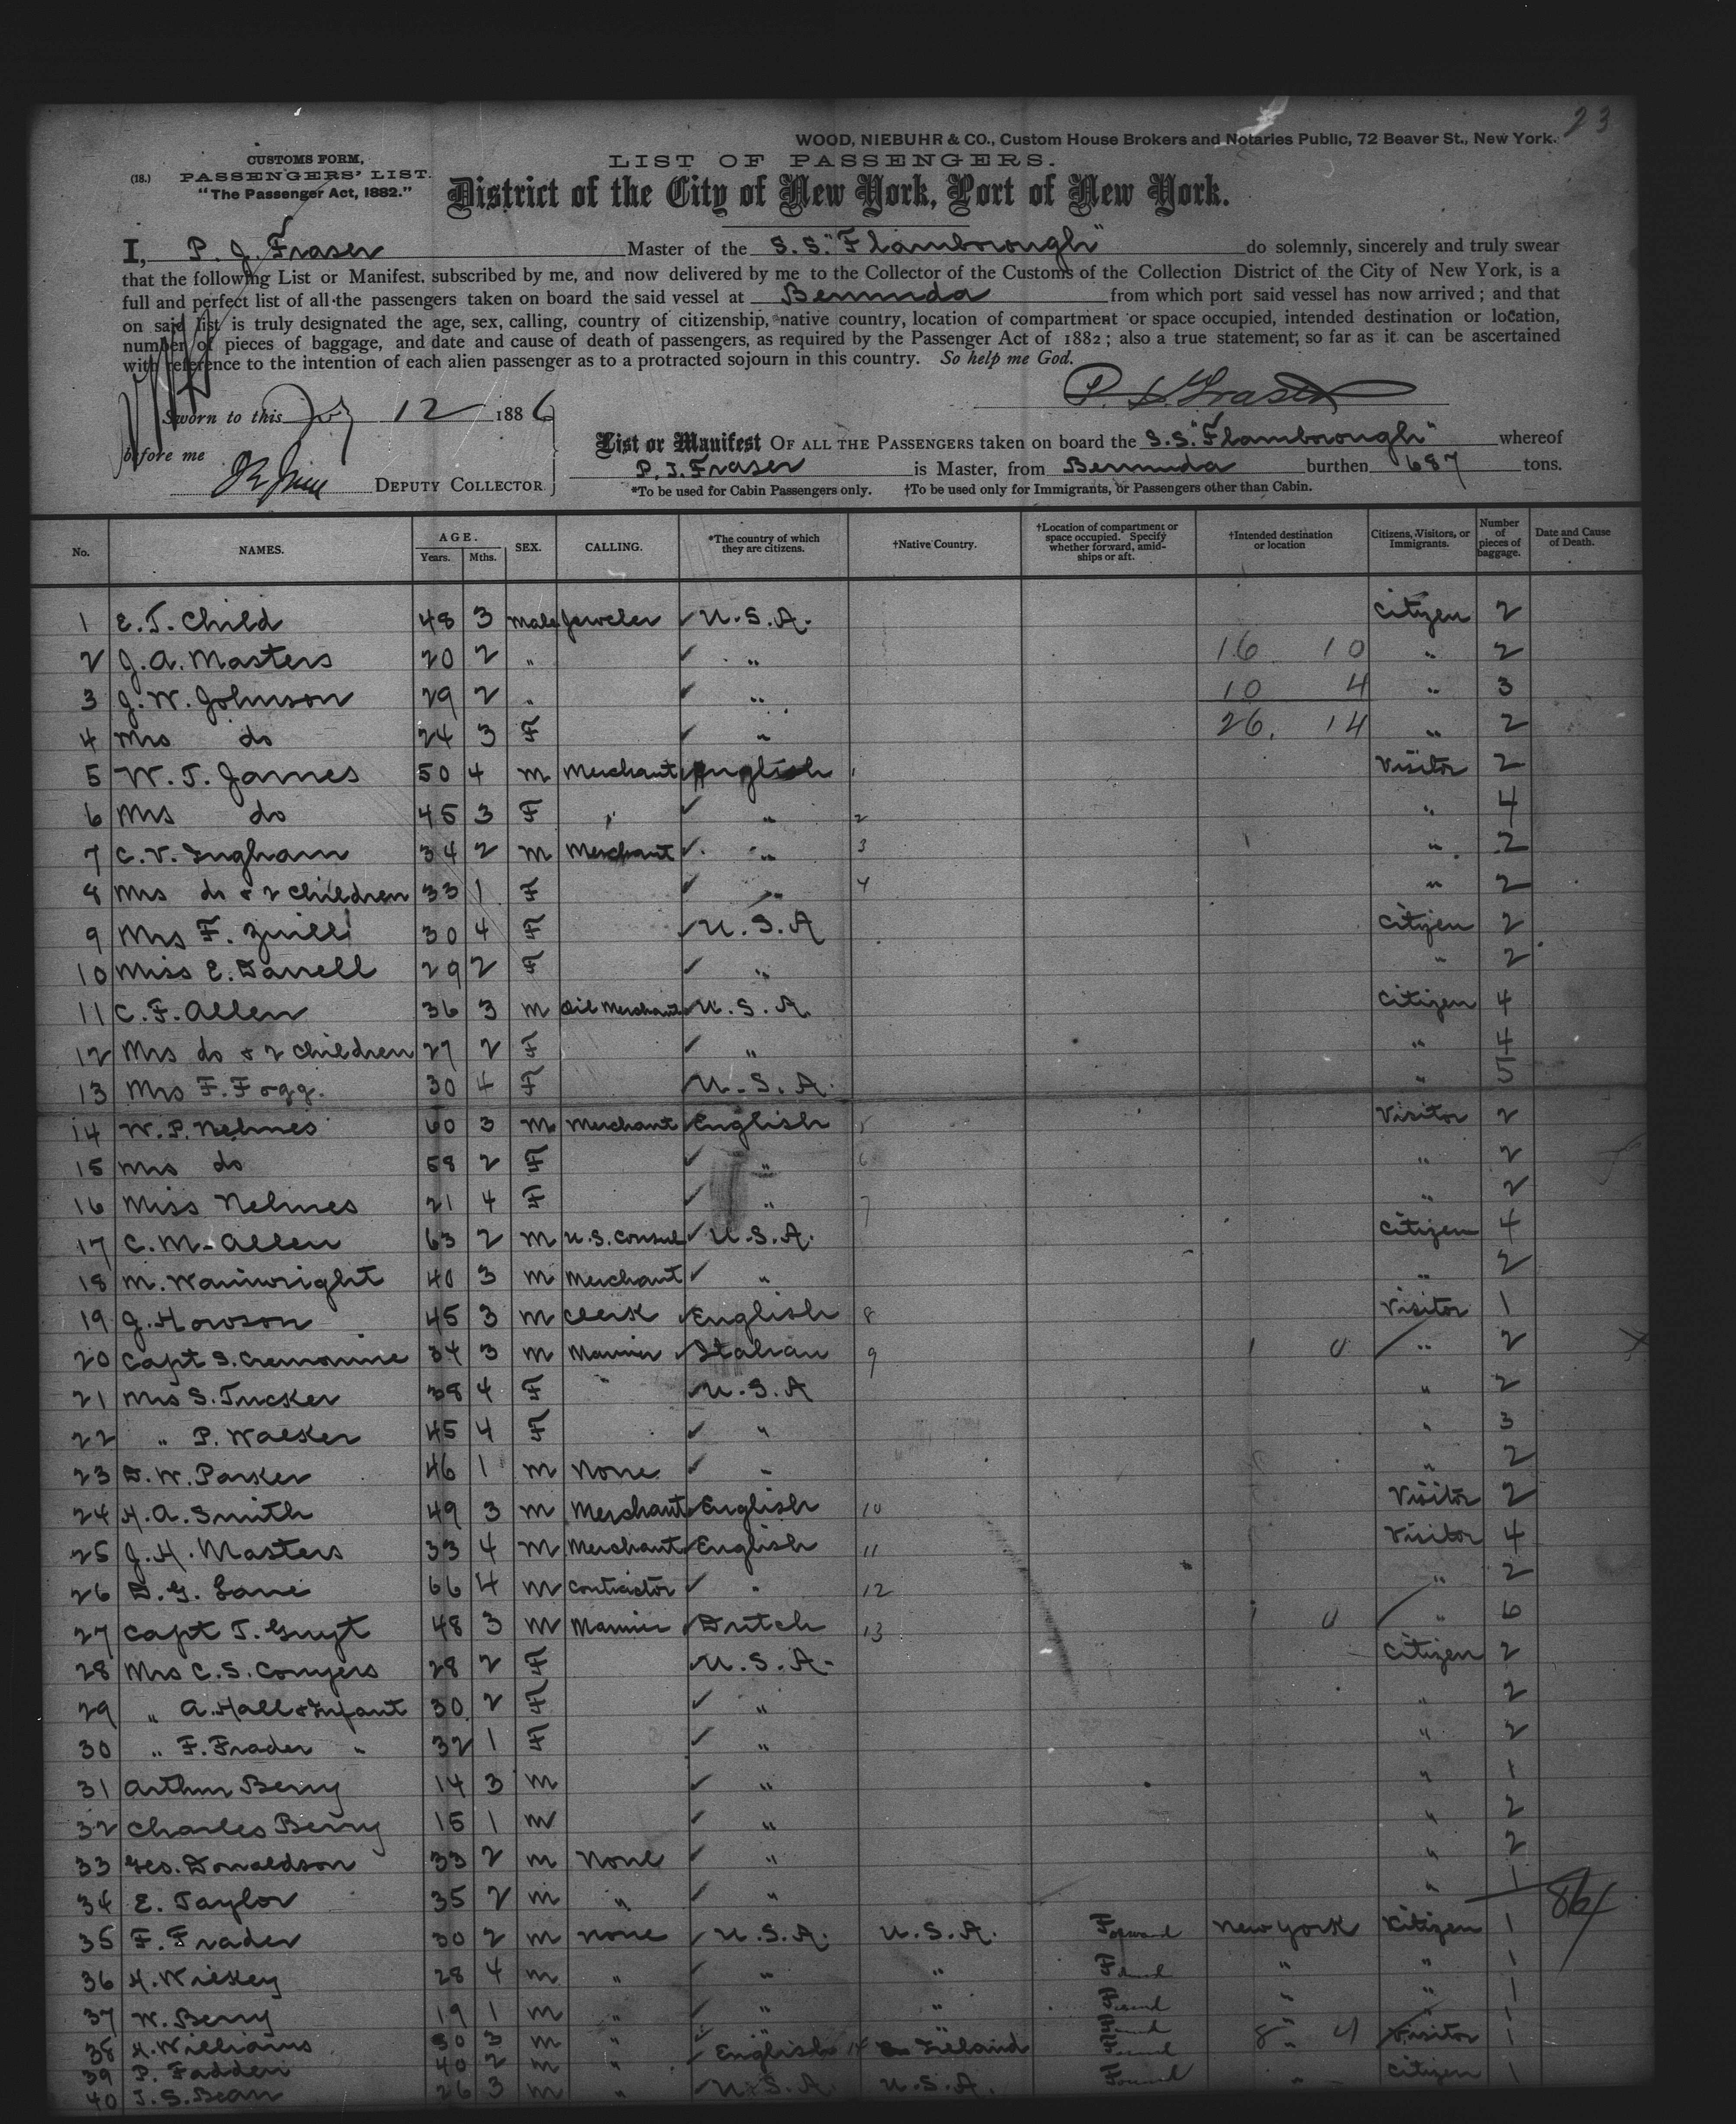 23
WOOD, NIEBUHR & CO., Custom House Brokers and Notaries Public, 72 Beaver St., New York.
(18.) CUSTOMS FORM,
PASSENGERS' LIST.
"The Passenger Act, 1882."
LIST OF PASSENGERS.
District of the City of New York, Port of New York.
I, P. J. Fraser Master of the S.S. "Flamborough" do solemnly, sincerely and truly swear
that the following List or Manifest, subscribed by me, and now delivered by me to the Collector of the Customs of the Collection District of the City of New York, is a
full and perfect list of all the passengers taken on board the said vessel at Bermuda from which port said vessel has now arrived; and that
on said list is truly designated the age, sex, calling, country of citizenship, *native country, location of compartment or space occupied, intended destination or location,
number of pieces of baggage, and date and cause of death of passengers, as required by the Passenger Act of 1882; also a true statement; so far as it can be ascertained
with reference to the intention of each alien passenger as to a protracted sojourn in this country. So help me God.
P. J. Fraser
Sworn to this 12 1886
before me
DEPUTY COLLECTOR
List or Manifest OF ALL THE PASSENGERS taken on board the S.S. "Flamborough" whereof
P. J. Fraser is Master, from Bermuda burthen 687 tons.
*To be used for Cabin Passengers only. †To be used only for Immigrants, or Passengers other than Cabin.
No. NAMES. AGE. Years. Mths. SEX. CALLING. *The country of which they are citizens. †Native Country. †Location of compartment or space occupied. Specify whether forward, amidships or aft. †Intended destination or location Citizens, Visitors, or Immigrants. Number of pieces of baggage. Date and Cause of Death.
1 E. T. Child 48 3 Male Jeweler U.S.A. Citizen 2
2 J. A. Masters 20 2 " " 16 10 " 2
3 J. W. Johnson 29 2 " " 10 4 " 3
4 Mrs do 24 3 F " 26. 14 " 2
5 W. T. James 50 4 M Merchant English 1 Visitor 2
6 Mrs do 45 3 F " " 2 " 4
7 C. V. Ingham 34 2 M Merchant " 3 " 2
8 Mrs do & 2 children 33 1 F " 4 " 2
9 Mrs F. Zuill 30 4 F U.S.A Citizen 2
10 Miss E. Darrell 29 2 F " " 2
11 C. F. Allen 36 3 M Oil Merchant U.S.A. Citizen 4
12 Mrs do & 2 children 27 2 F " " 4
13 Mrs F. Fogg. 30 4 F U.S.A. " 5
14 W. P. Nelmes 60 3 M Merchant English 5 Visitor 2
15 Mrs do 58 2 F " 6 " 2
16 Miss Nelmes 21 4 F " 7 " 2
17 C. M. Allen 63 2 M U.S. Consul U.S.A. Citizen 4
18 M. Wainwright 40 3 M Merchant " " 2
19 J. Howson 45 3 M Clerk English 8 Visitor 1
20 Capt S. Cremonine 34 3 M Mariner Italian 9 1 0 " 2
21 Mrs S. Tucker 38 4 F U.S.A " 2
22 " P. Walker 45 4 F " " 3
23 D. W. Parker 46 1 M None " " 2
24 H. A. Smith 49 3 M Merchant English 10 Visitor 2
25 J. H. Masters 33 4 M Merchant English 11 Visitor 4
26 D. G. Lane 66 4 M Contractor " 12 " 2
27 Capt T. Gruyt 48 3 M Mariner Dutch 13 1 0 " 6
28 Mrs C. S. Conyers 28 2 F U.S.A. Citizen 2
29 " A. Hall & Infant 30 2 F " " 2
30 " F. Frader " 32 1 F " " 2
31 Arthur Berry 14 3 M " " 1
32 Charles Berry 15 1 M " " 2
33 Geo. Donaldson 33 2 M None " " 2
34 E. Taylor 35 2 M " " " 1
86
35 F. Frader 30 2 M None U.S.A. U.S.A. Forward New York Citizen 1
36 H. Wickey 28 4 M " " " " " 1
37 W. Berry 19 1 M " " " " " 1
38 H. Williams 30 3 M " " " 1
39 P. Fadden 40 2 M " English 14 Ireland 8 4 Visitor 1
40 J. S. Bean 26 3 M " U.S.A. U.S.A. " Citizen 1